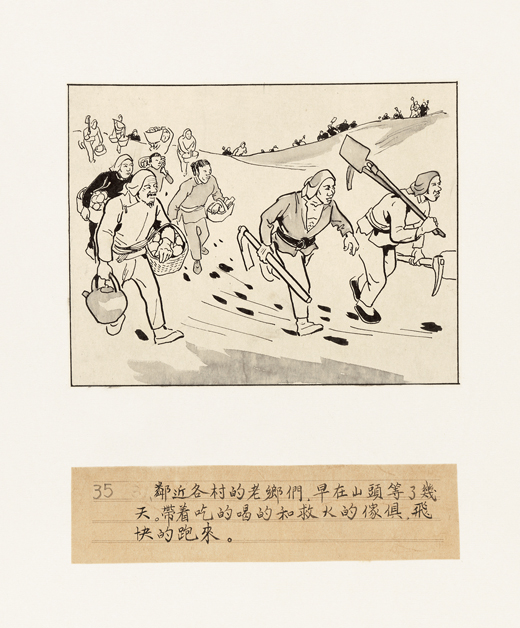 35 鄰近各村的老鄉們,早在山頭等了幾
天。帶着吃的喝的和救火的傢俱,飛
快的跑來。